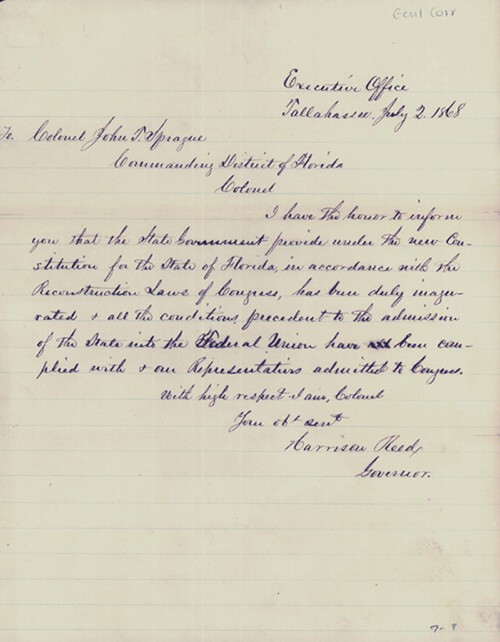 Genl Corr
Executive Office
Tallahassee, July 2. 1868
To Colonel John T. Sprague
Commanding District of Florida
Colonel
I have the honor to inform
you that the State Government provide under the new Con-
stitution for the State of Florida, in accordance with the
Reconstruction Laws of Congress, has been duly inagu-
rated & all the conditions precedent to the admission
of the State into the Federal Union have been com-
plied with & our Representatives admitted to Congress.
With high respect I am, Colonel
Your obt servt
Harrison Reed,
Governor.